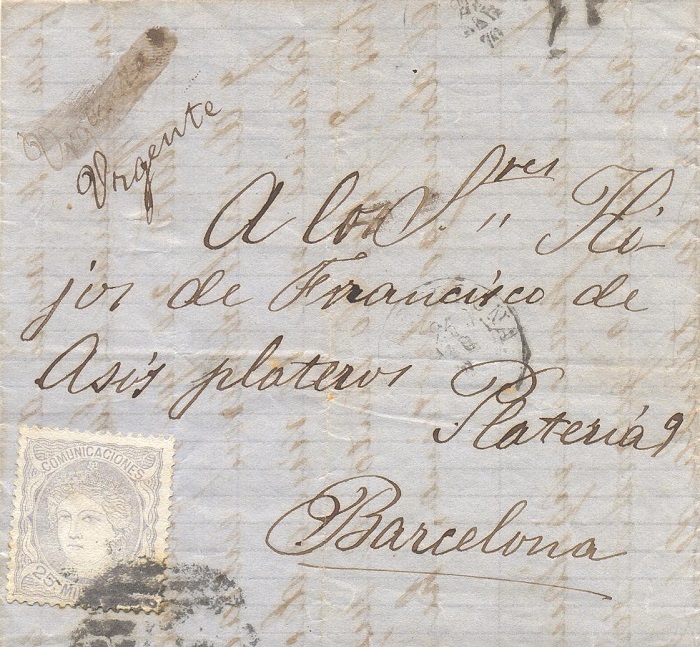 Urgente
A los S.res Hi
jos de Francisco de
Asis plateros
Platería 9
Barcelona
COMUNICACIONES
25 MI